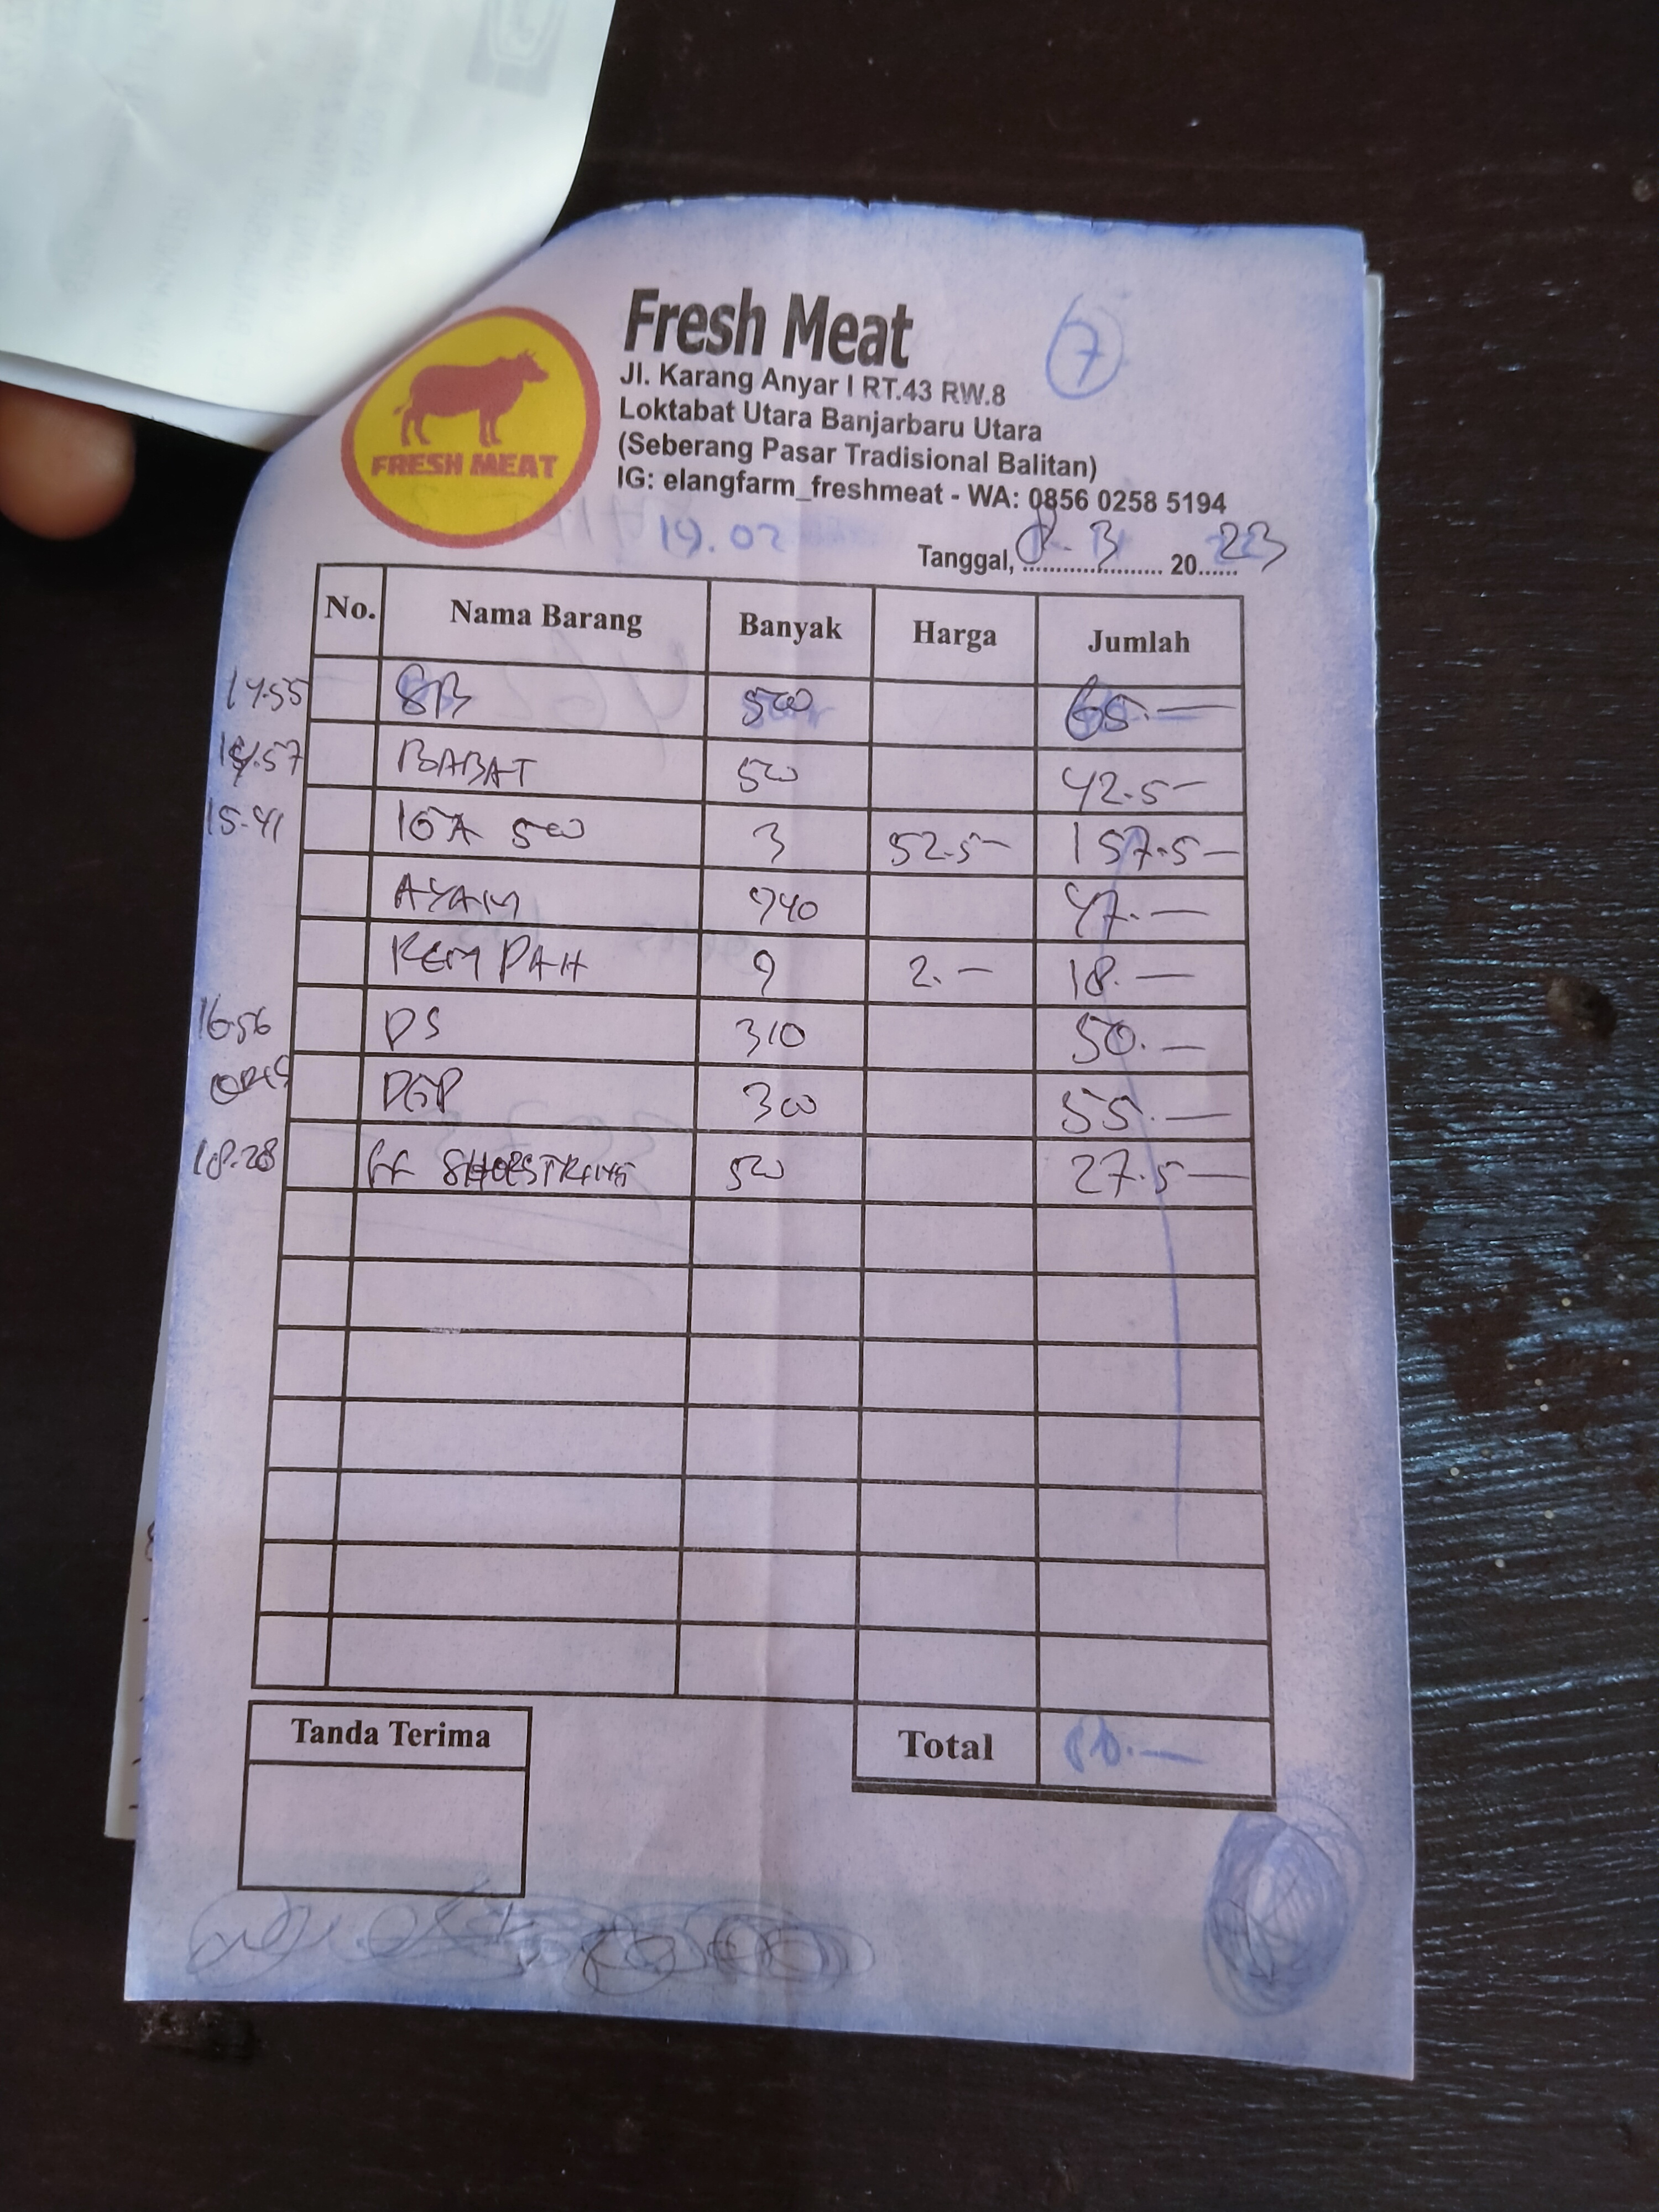 Fresh Meat
7
Jl. Karang Anyar I RT.43 RW.8
Loktabat Utara Banjarbaru Utara
(Seberang Pasar Tradisional Balitan)
IG: elangfarm_freshmeat - WA: 0856 0258 5194
FRESH MEAT
19.02
Tanggal, 8.3 2023
No. Nama Barang Banyak Harga Jumlah
14.55 SB 500 65.—
14.57 BABAT 500 42.5—
15.41 IGA 500 3 52.5— 157.5—
AYAM 940 47.—
KEM PAH 9 2.— 18.—
16.56 DS 310 50.—
DGP 300 55.—
18.28 FF SHOESTRING 500 27.5—
Tanda Terima
Total